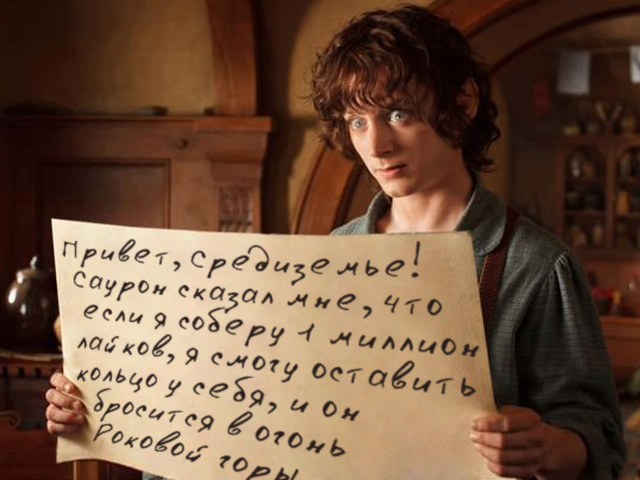 Привет, Средиземье!
Саурон сказал мне, что
если я соберу 1 миллион
лайков, я смогу оставить
кольцо у себя, и он
бросится в огонь
Роковой горы